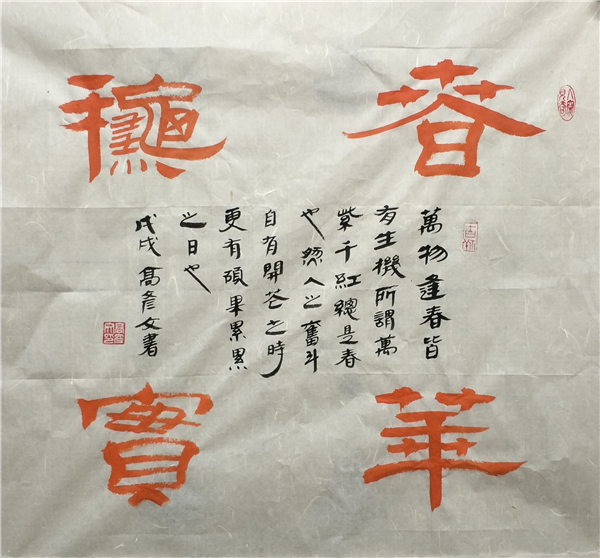 春華
龝實
萬物逢春皆
有生機所謂萬
紫千紅總是春
也然人之奮斗
自有開花之時
更有碩果累累
之日也
戊戌高彦文書